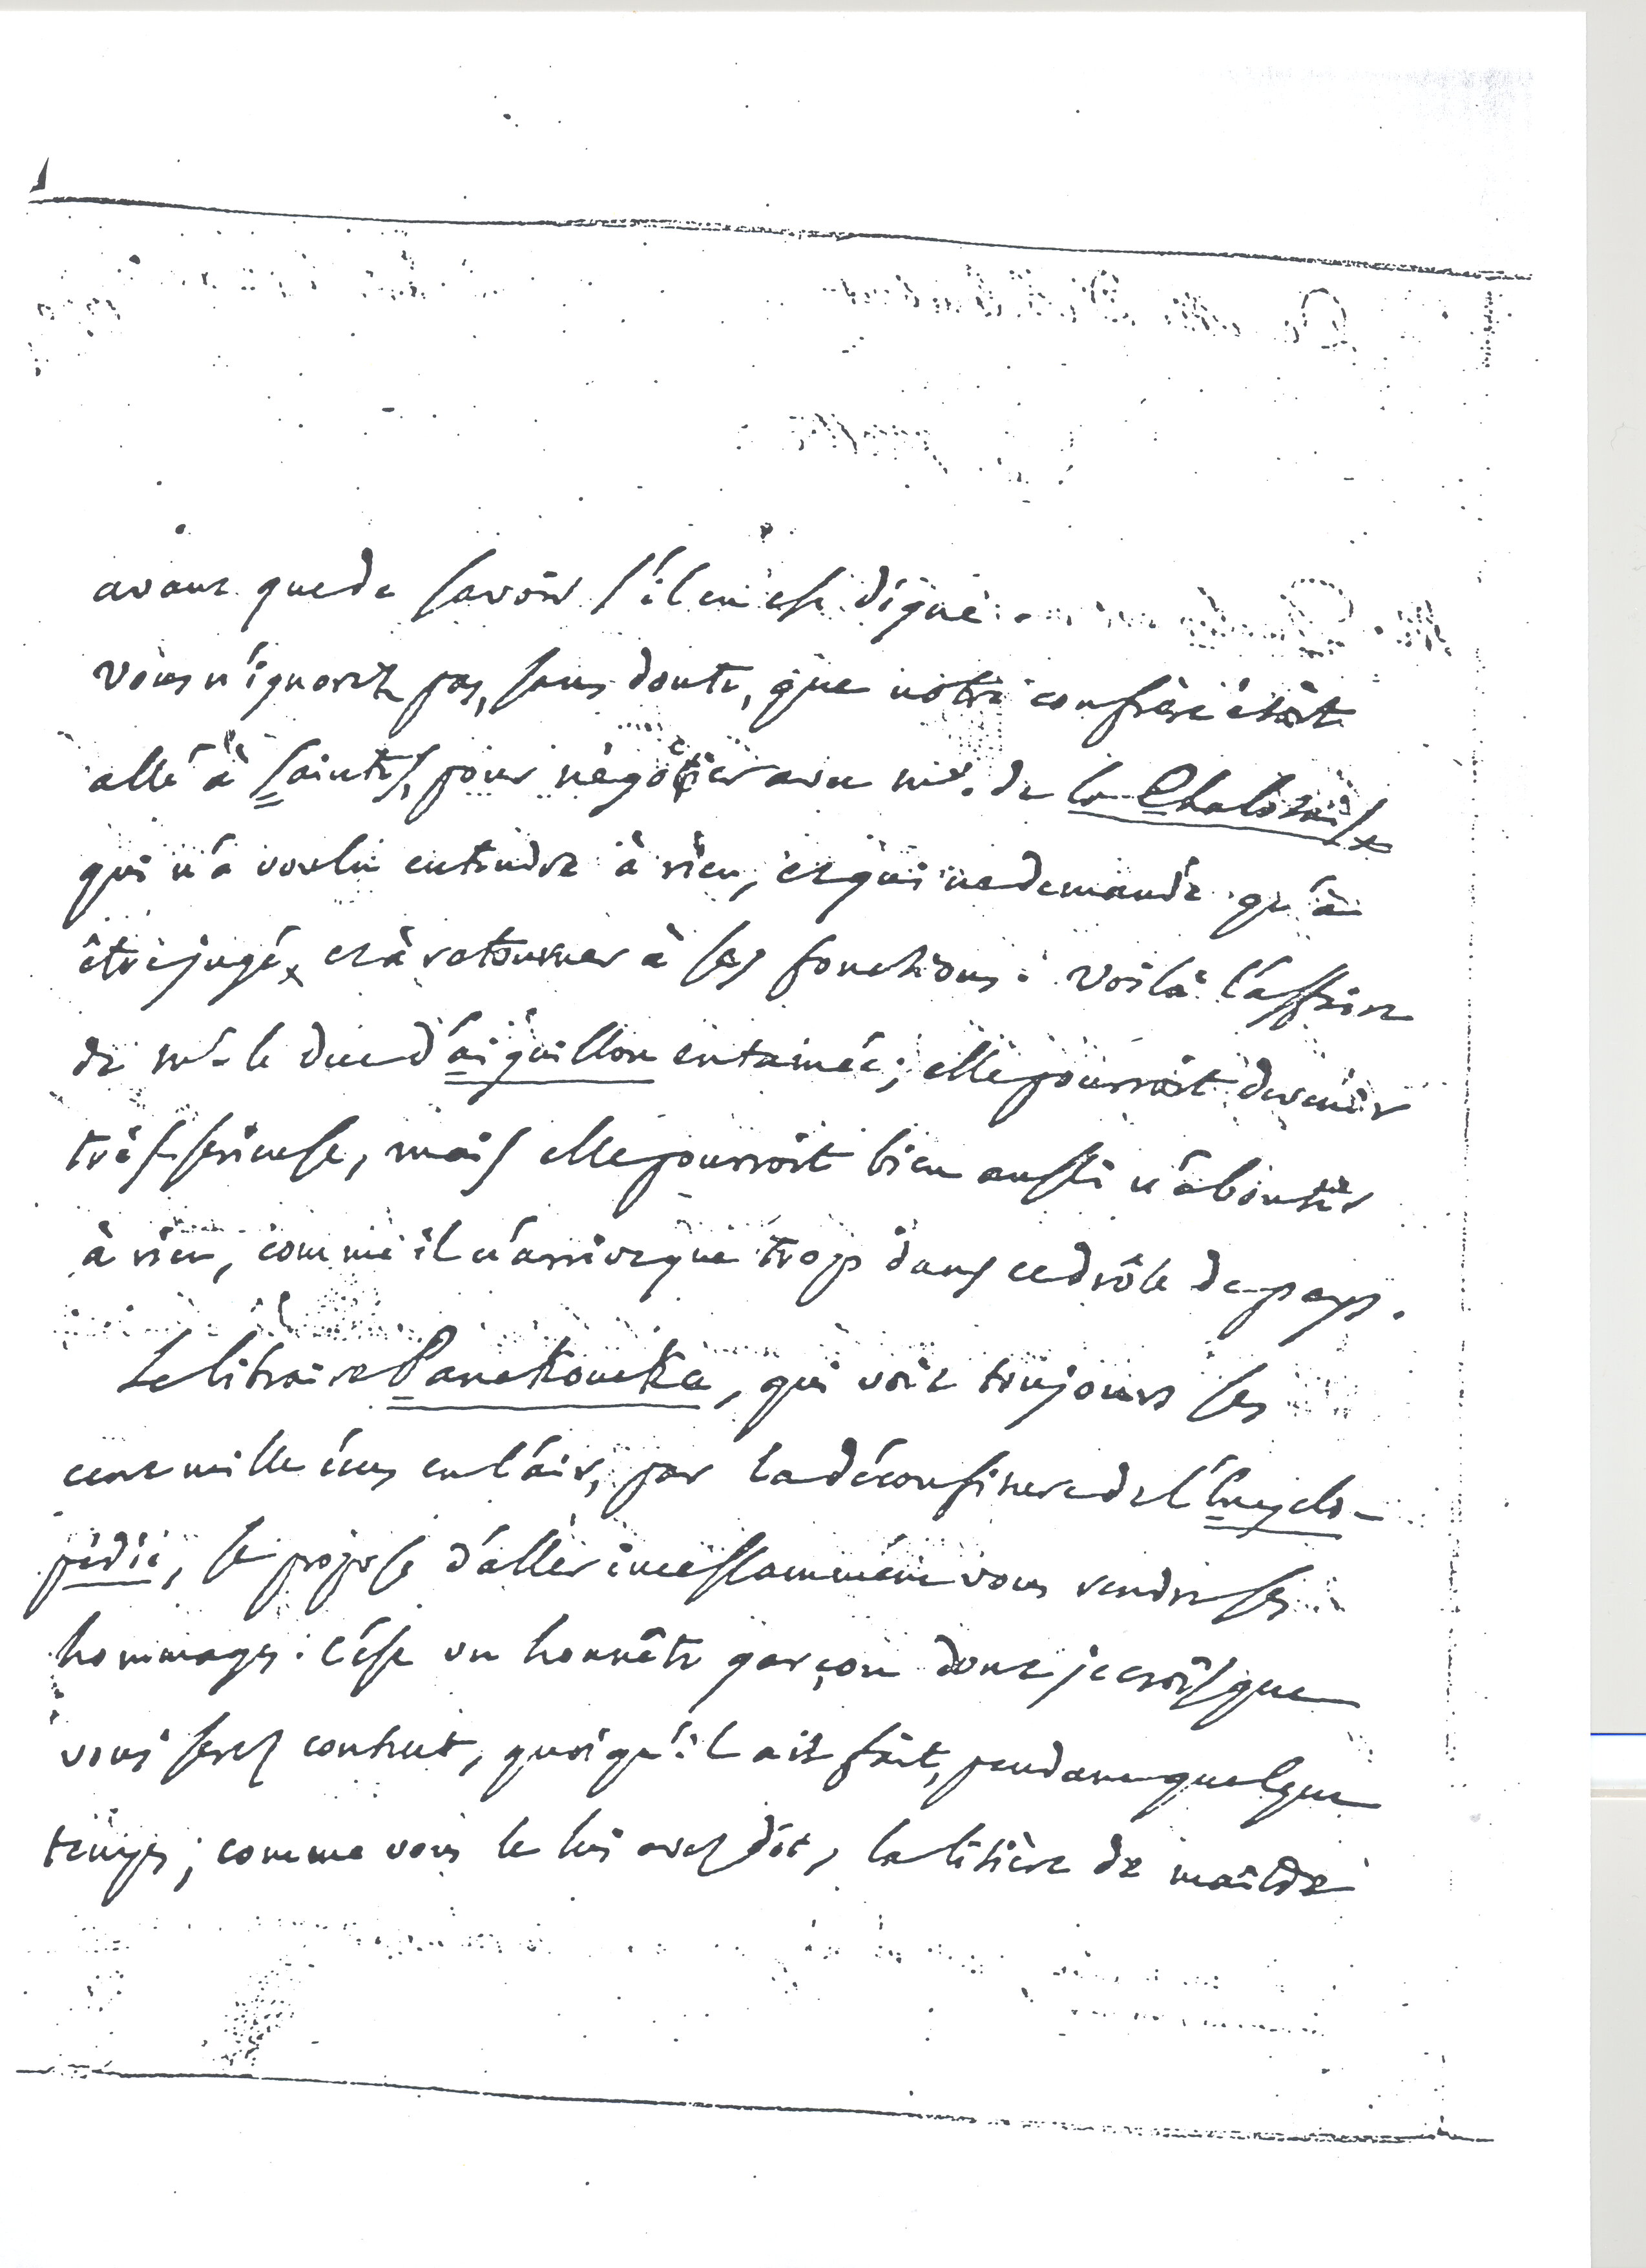 avant que de savoir s'il en est digne.
vous n'ignorez pas, sans doute, que notre confrère étoit
allé à Saintes, pour négotier avec mr. de la Chalotais
qui n'a voulu entendre à rien, et qui ne demande qu'à
être jugé, et à retourner à ses fonctions : voilà l'affaire
de mr. le duc d'aiguillon entamée ; elle pourroit devenir
très serieuse, mais elle pourroit bien aussi n'aboutir
à rien, comme il n'arrive que trop dans ce drôle de pays.
Le libraire Panckoucke, qui voit toujours ses
cent mille écus en l'air, par la déconfiture de l'Encyclo-
pédie, se propose d'aller incessamment vous rendre ses
hommages. c'est un honnête garçon dont je crois que
vous serez content, quoiqu'il ait fait, pendant quelque
temps ; comme vous le lui avez dit, la litière de maître